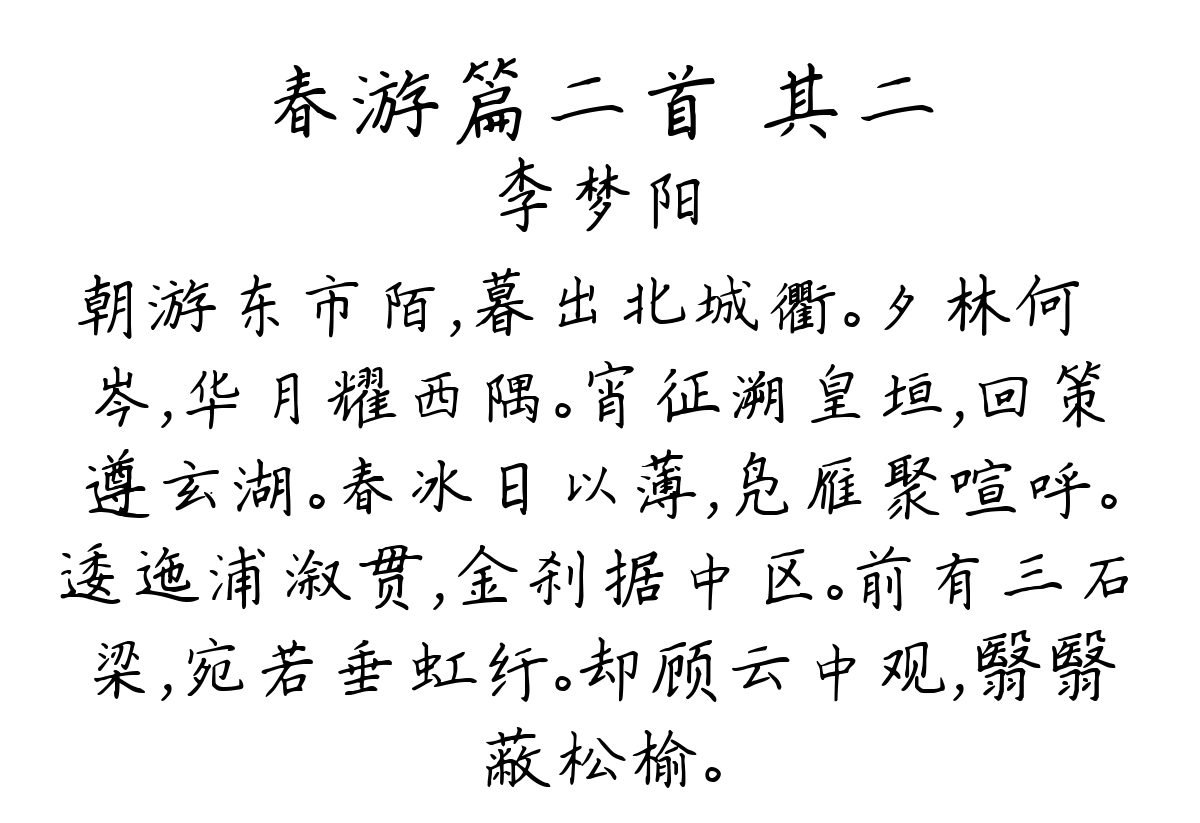 春游篇二首 其二
李梦阳
朝游东市陌,暮出北城衢。夕林何
岑,华月耀西隅。宵征溯皇垣,回策
遵玄湖。春冰日以薄,凫雁聚喧呼。
逶迤浦溆贯,金刹据中区。前有三石
梁,宛若垂虹纡。却顾云中观,翳翳
蔽松榆。